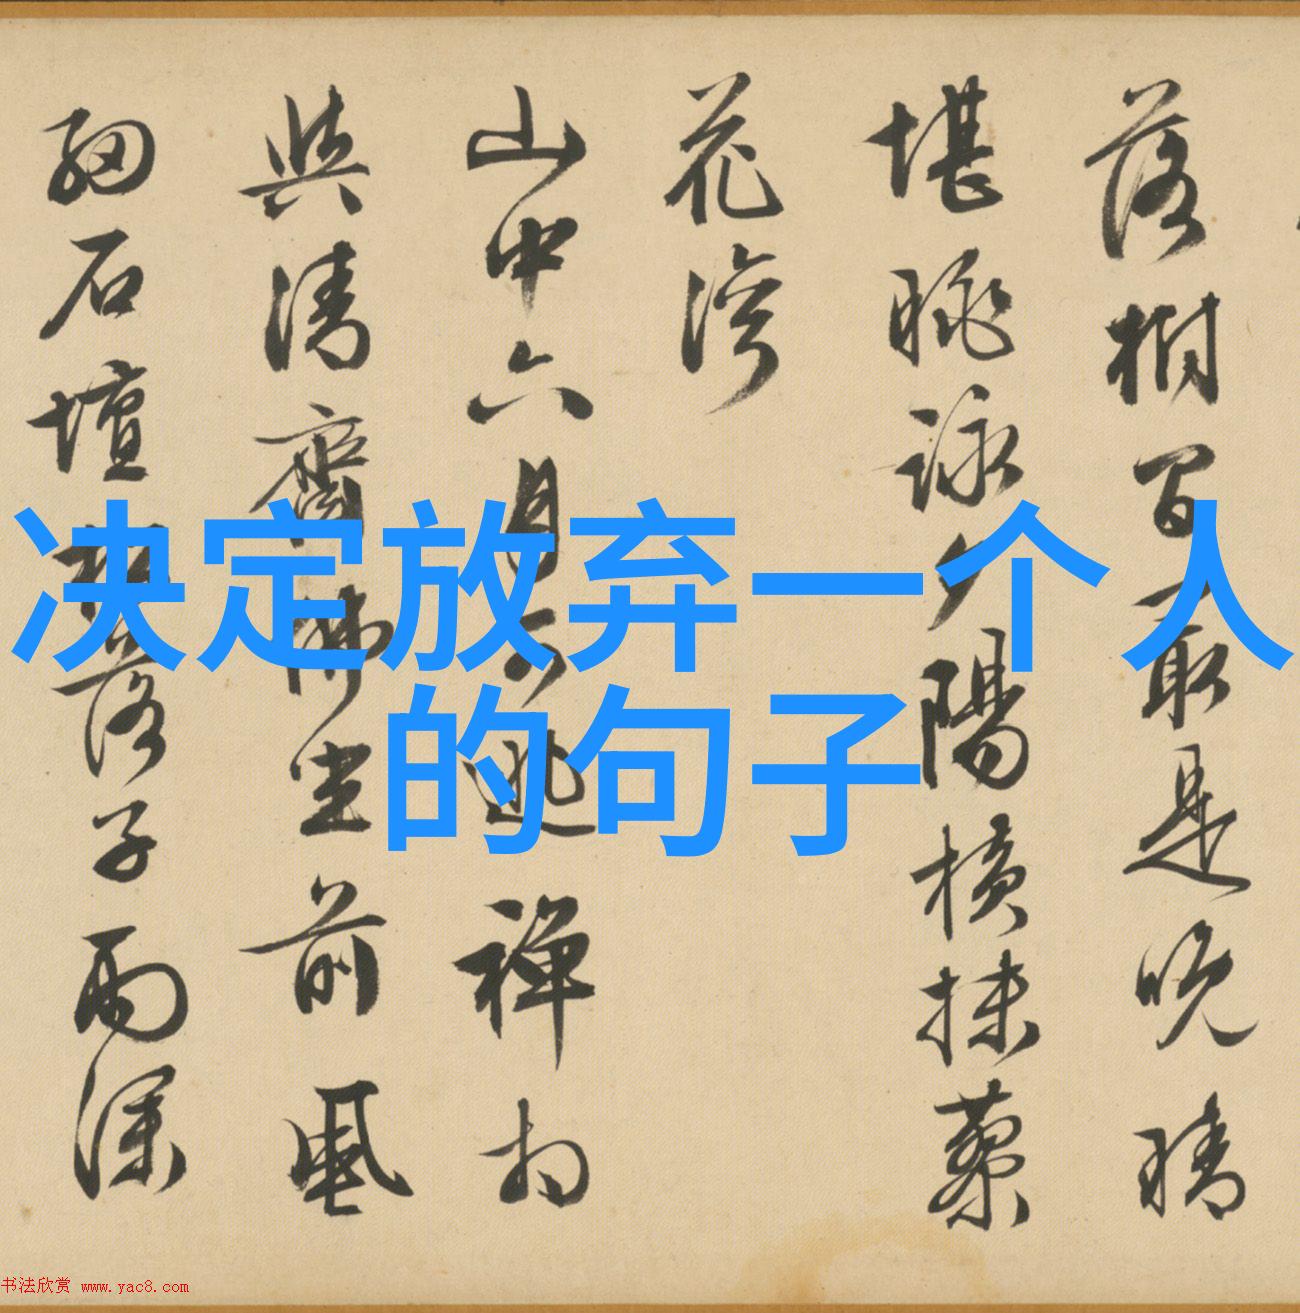 决定放弃一个人
的句子
落樹最是晚晴
堪眺詠夕陽橫抹藥
花灣
山中六月可逃禪相
與清齋佛坐前風
細石壇松落子雨深
书法欣赏 www.yac8.com